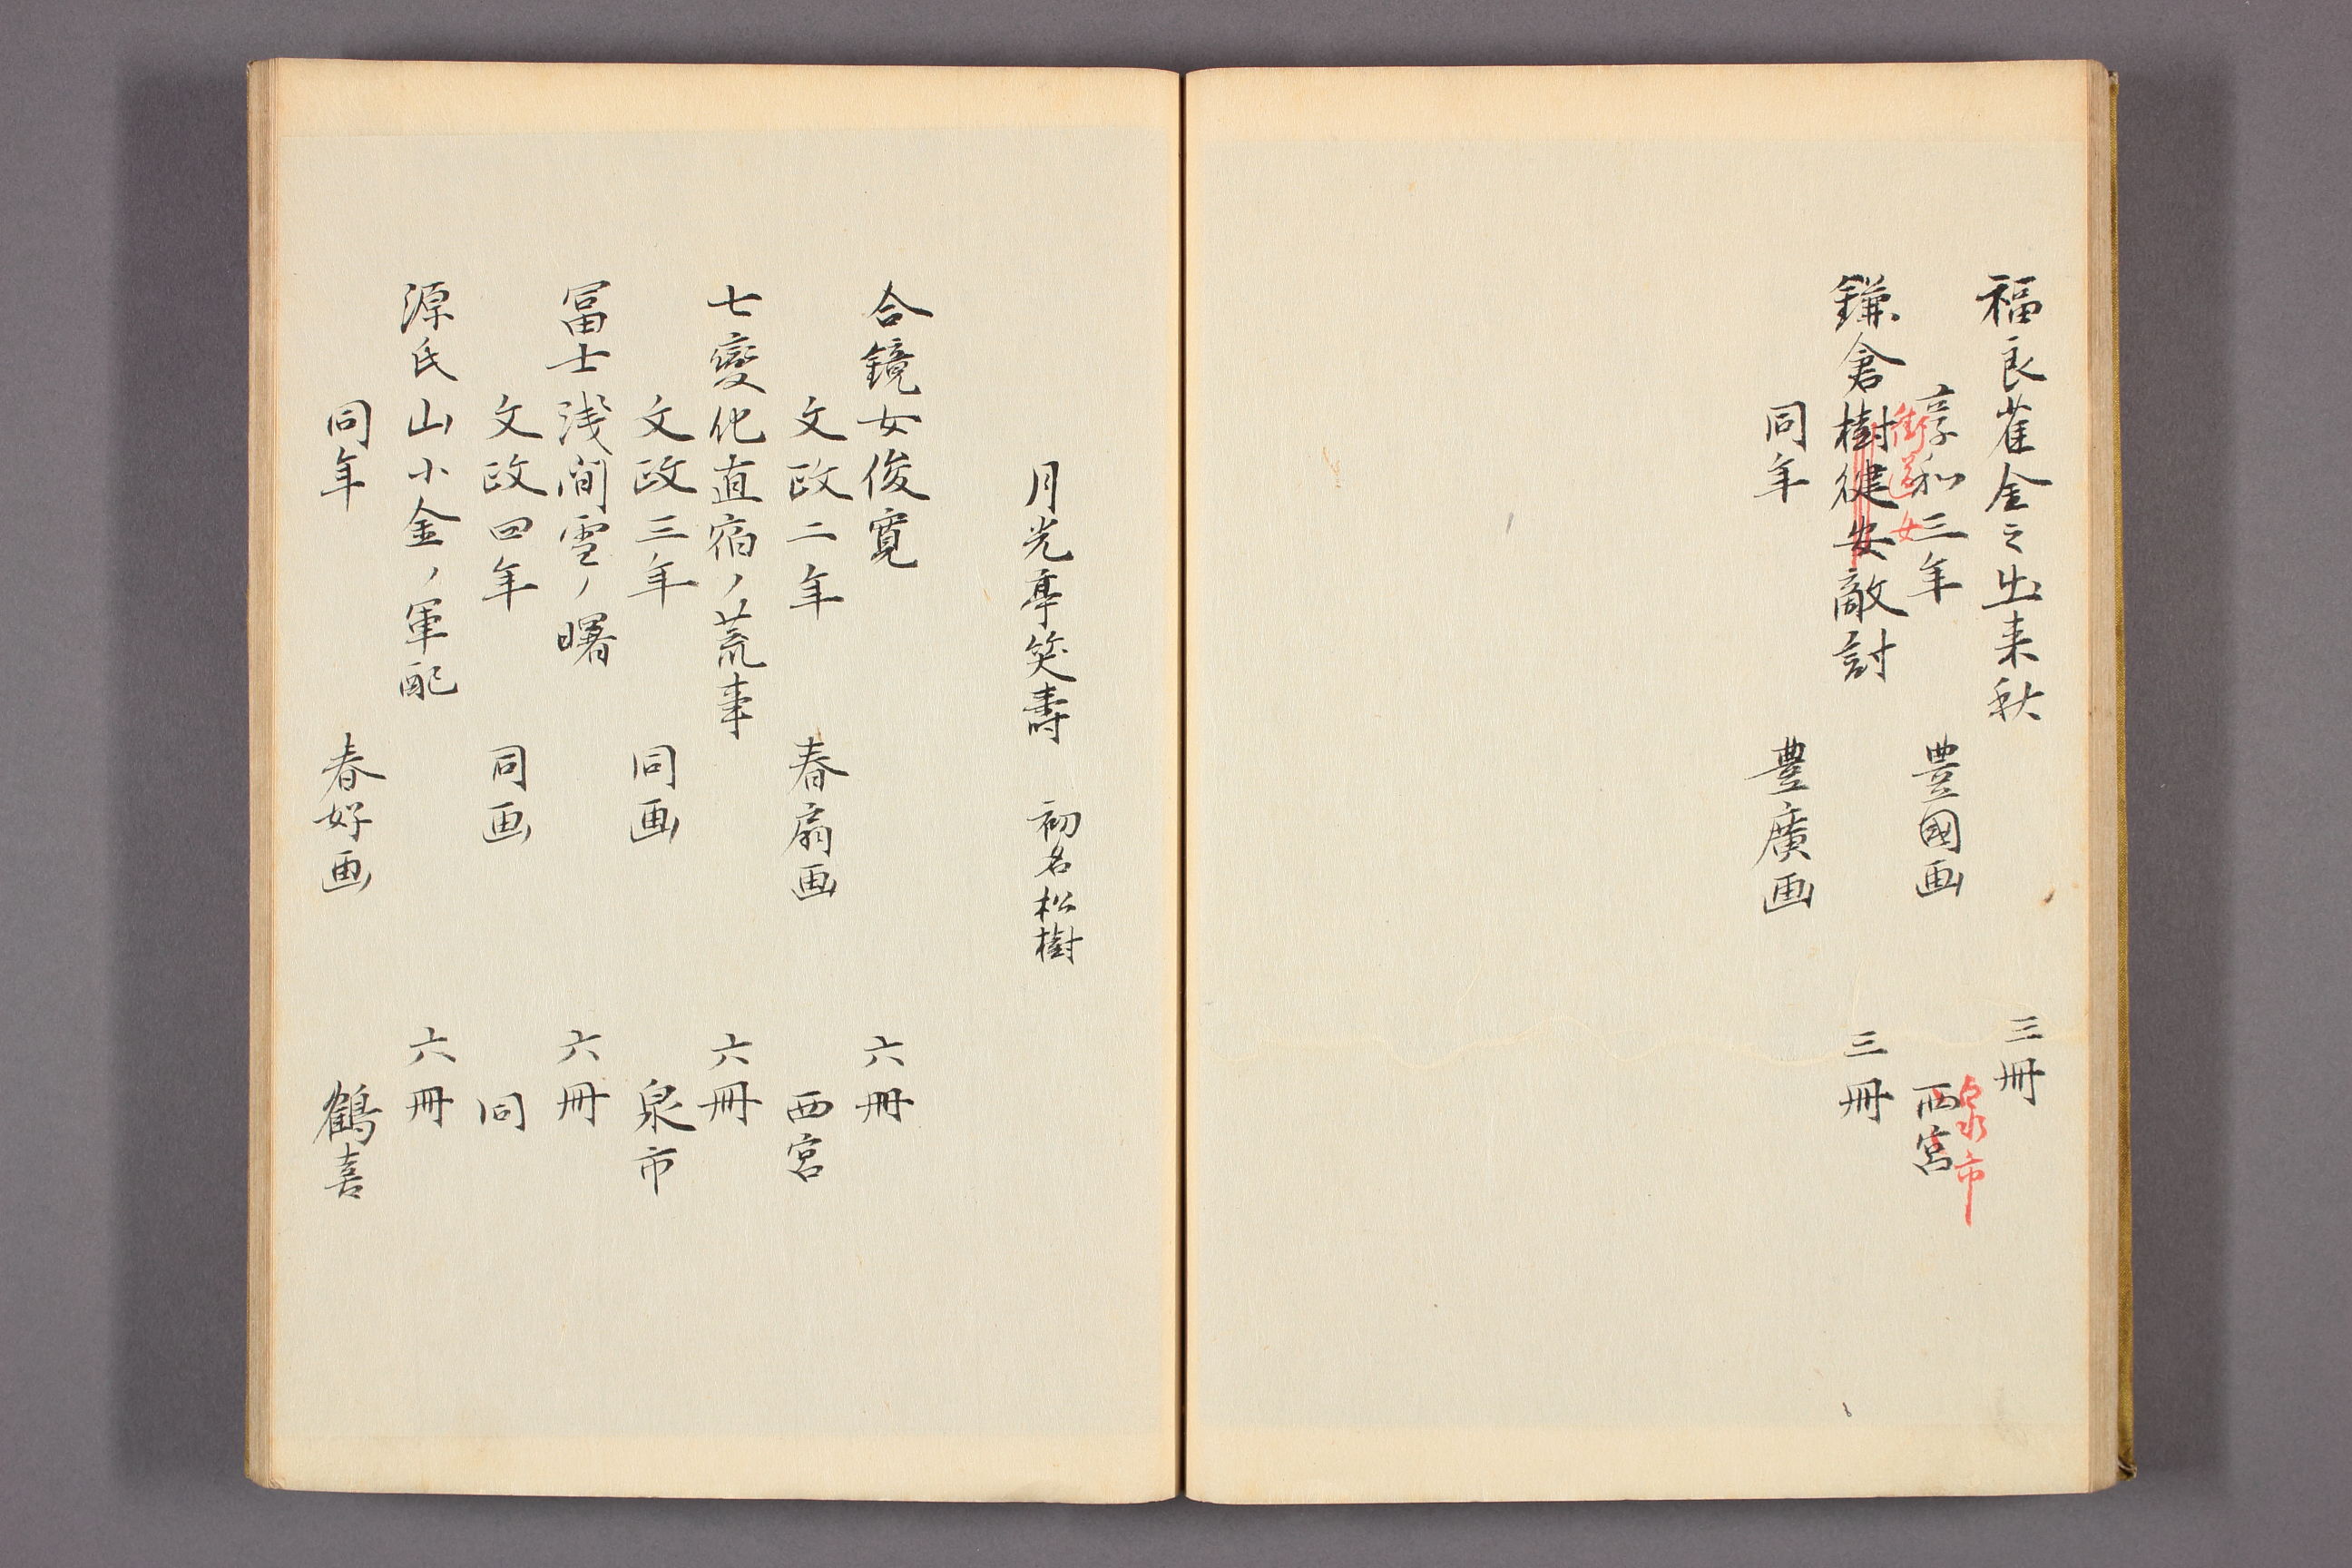 福良雀金之出来秋　三冊
享和三年　豊國画　西宮
泉市
鎌倉樹徤女敵討　三冊
街道女
同年　豊廣画
月光亭笑壽　初名松樹
合鏡女俊寛　六冊
文政二年　春扇画　西宮
七變化直宿ノ荒事　六冊
文政三年　同画　泉市
冨士浅間雪ノ曙　六冊
文政四年　同画　同
源氏山小金ノ軍配　六冊
同年　春好画　鶴喜